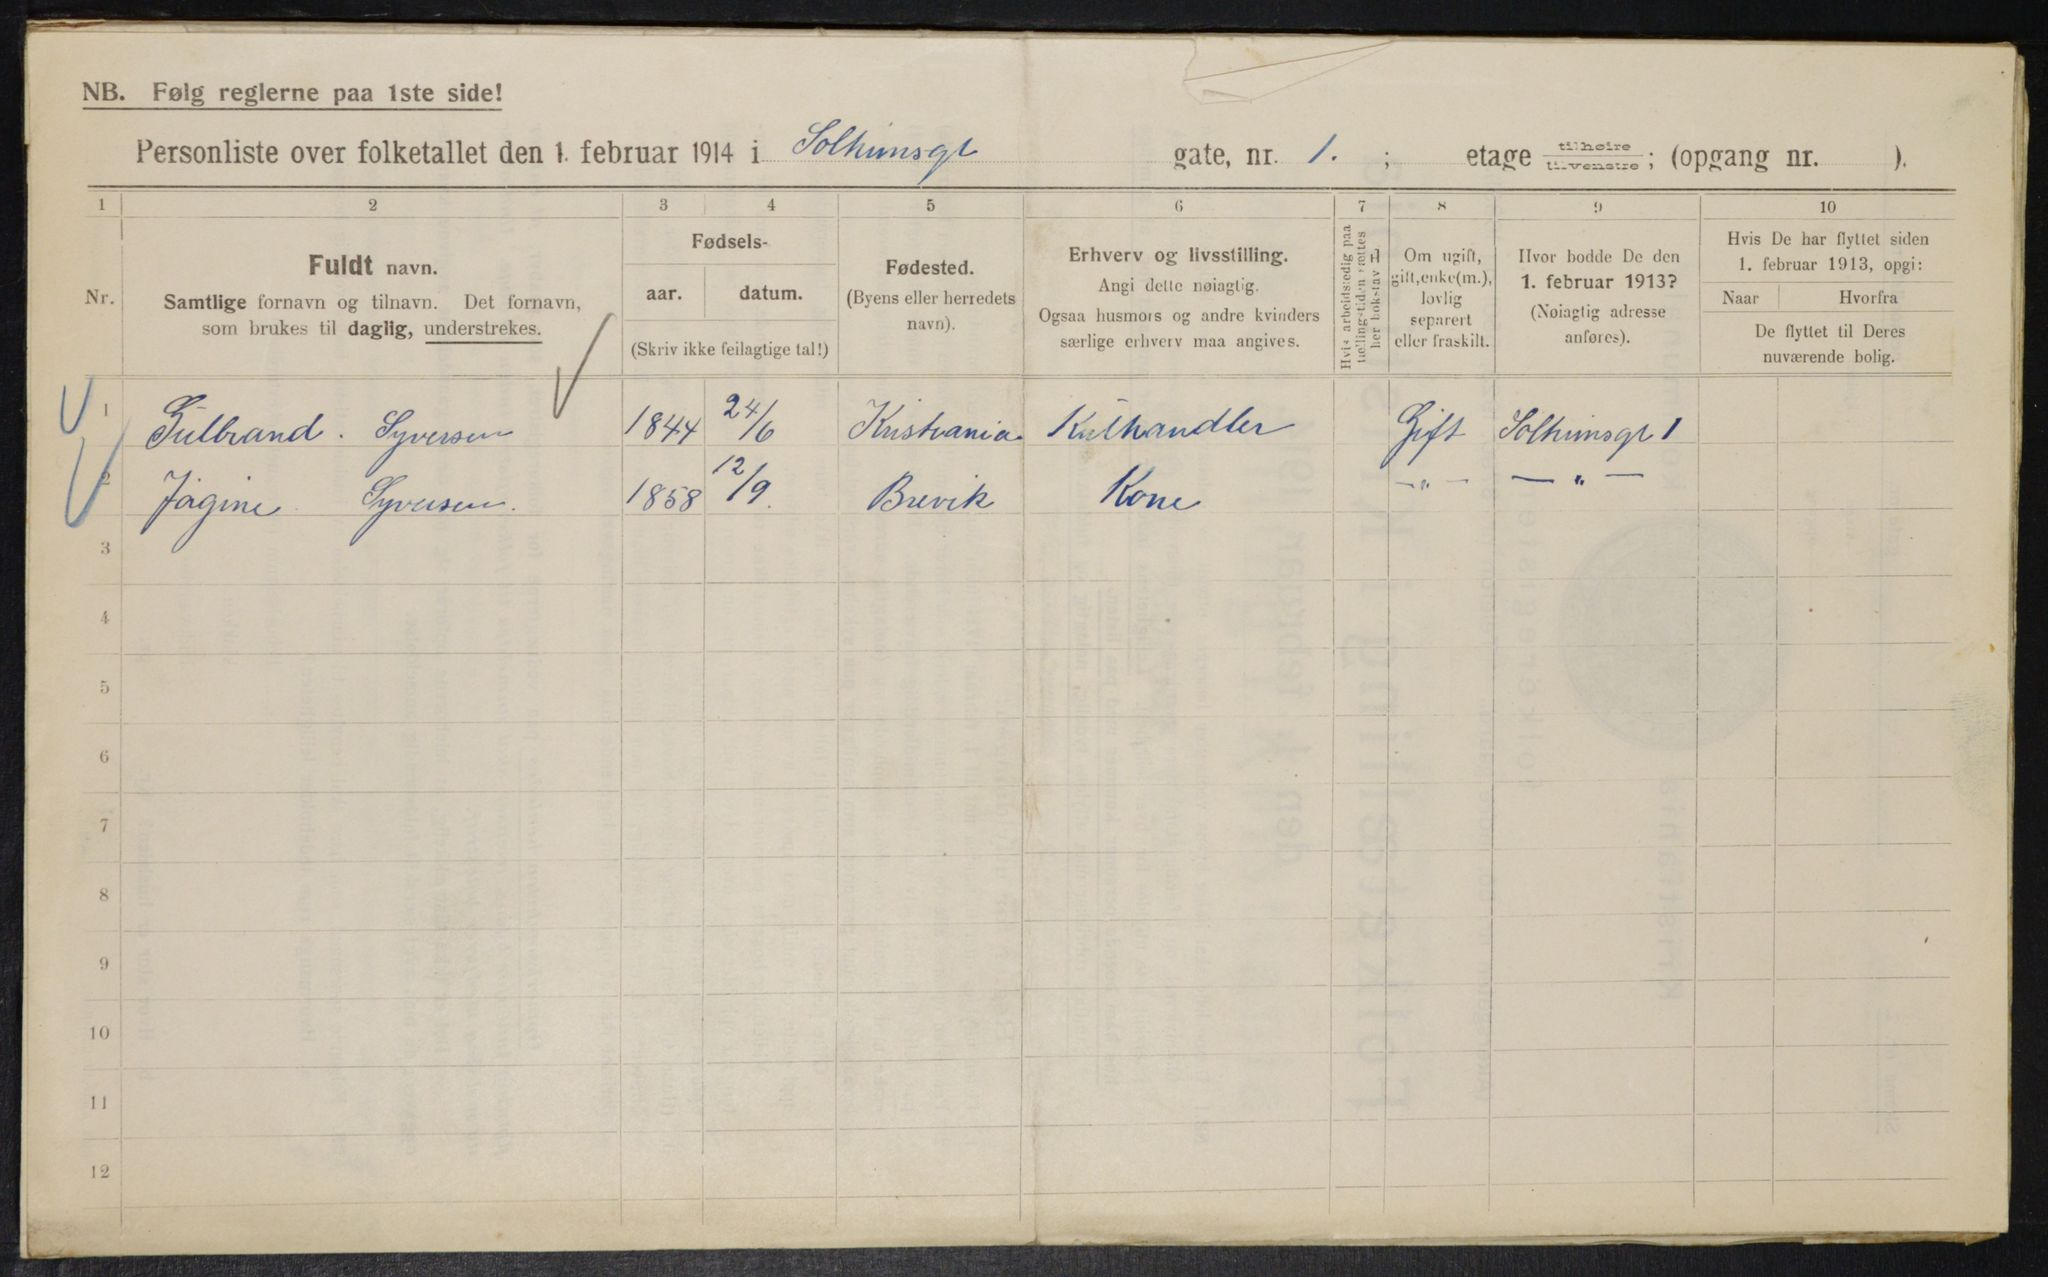 NB. Følg reglerne paa 1ste side!
Personliste over folketallet den 1. februar 1914 i Solhimsgt gate, nr. 1. ; etage tilhøire tilvenstre; (opgang nr. ).
1 2 3 4 5 6 7 8 9 10
Nr.
Fuldt navn.
Samtlige fornavn og tilnavn. Det fornavn,
som brukes til daglig, understrekes.
Fødsels-
aar. datum.
(Skriv ikke feilagtige tal!)
Fødested.
(Byens eller herredets
navn).
Erhverv og livsstilling.
Angi dette nøiagtig.
Ogsaa husmors og andre kvinders
særlige erhverv maa angives.
Hvis arbeidsledig paa
tællingstiden sættes
her bokstav L
Om ugift,
gift, enke(m.),
lovlig
separert
eller fraskilt.
Hvor bodde De den
1. februar 1913?
(Nøiagtig adresse
anføres).
Hvis De har flyttet siden
1. februar 1913, opgi:
Naar Hvorfra
De flyttet til Deres
nuværende bolig.
1 Gulbrand. Syversen 1844 24/6 Kristiania Kulhandler Gift Solhimsgt 1
2 Jørgine Syversen. 1858 12/9. Brevik Kone —„— — „ —
3
4
5
6
7
8
9
10
11
12